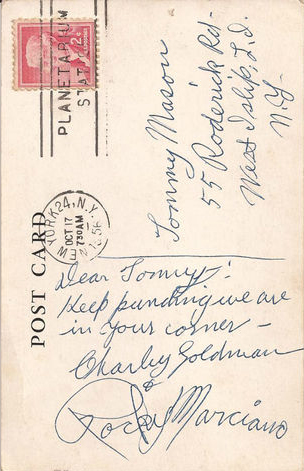 2¢
PLANETARIUM
STA
YORK 24, N.Y.
OCT 17
7 30 AM
POST CARD
Tommy Mason
55 Roderick Rd-
West Islip, L.I.
N.Y
Dear Tommy:
Keep punching we are
in your corner -
Charley Goldman
&
Rocky Marciano